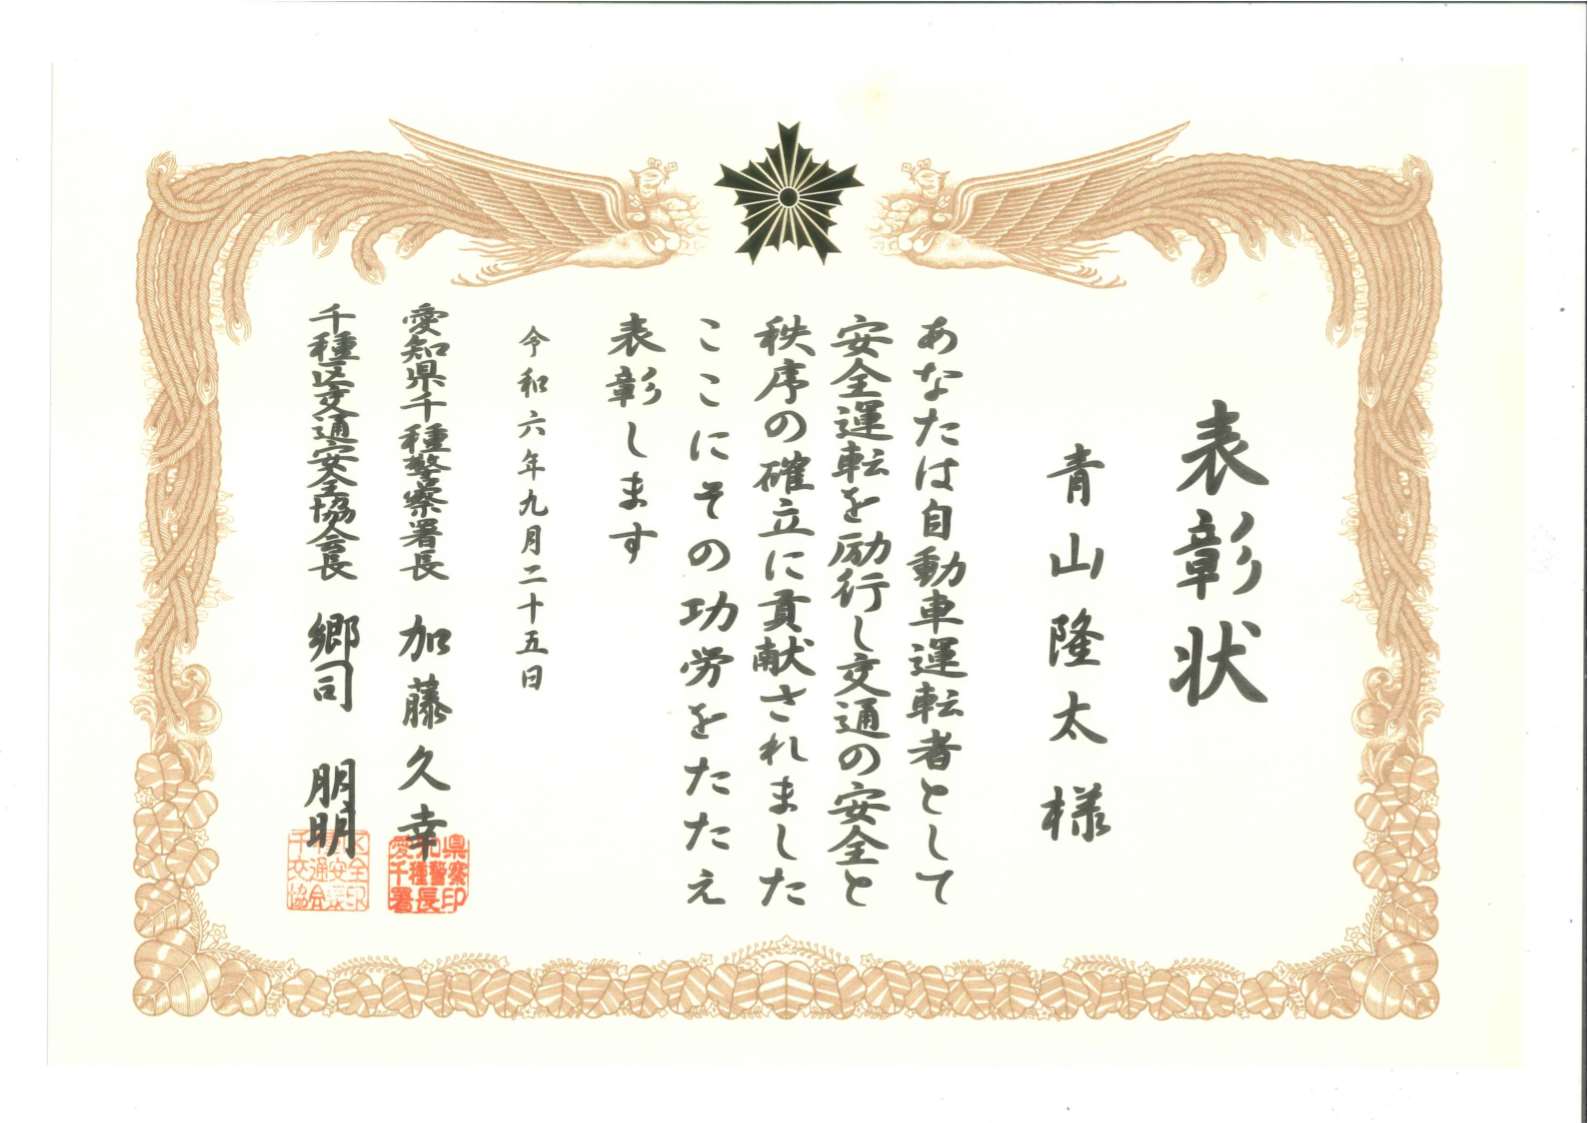 表彰状
青山隆太様
あなたは自動車運転者として
安全運転を励行し交通の安全と
秩序の確立に貢献されました
ここにその功労をたたえ
表彰します
令和六年九月二十五日
愛知県千種警察署長 加藤久幸
千種区交通安全協会長 郷司 朋明